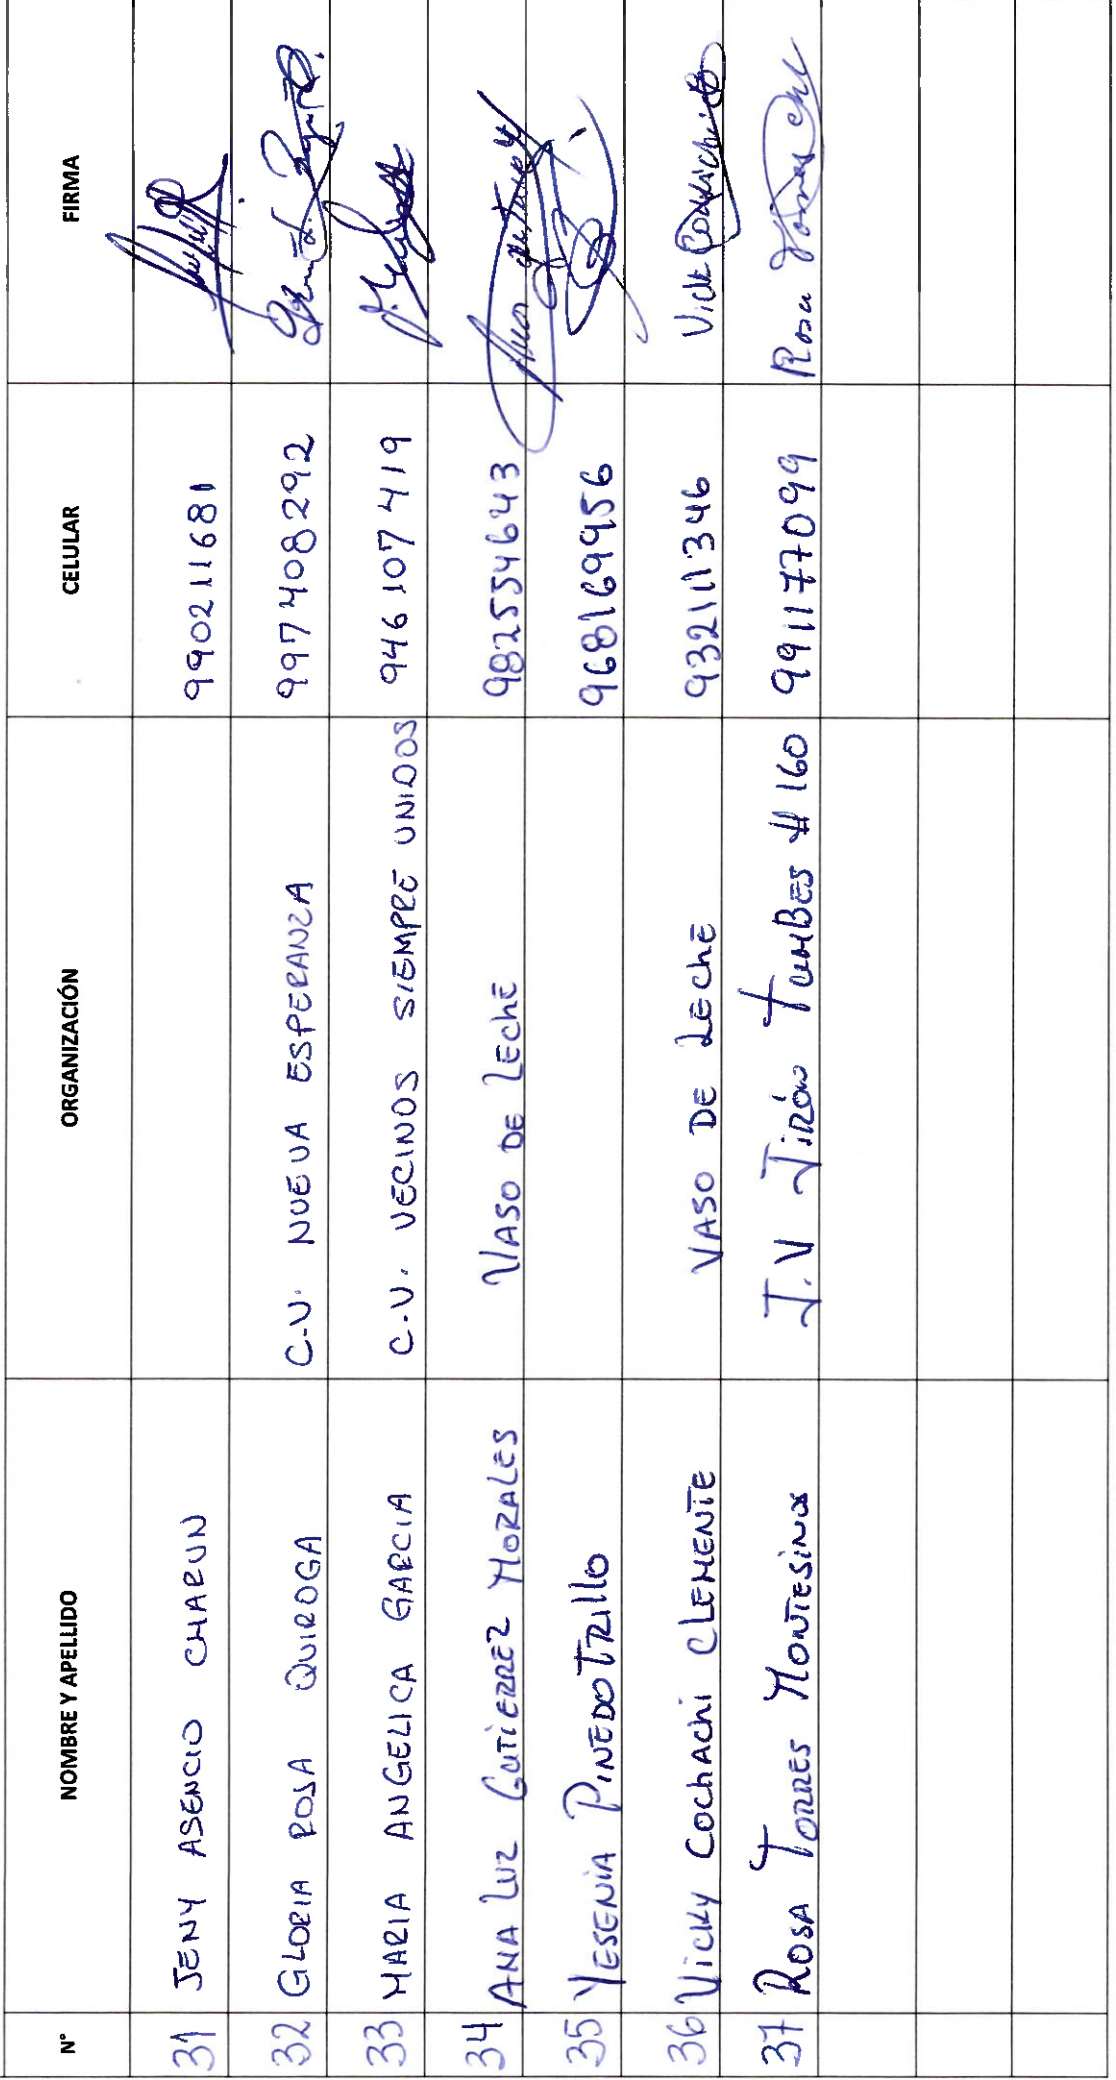 N° NOMBRE Y APELLIDO ORGANIZACIÓN CELULAR FIRMA
31 JENY ASENCIO CHARUN 990211681
32 GLORIA ROSA QUIROGA C.V. NUEVA ESPERANZA 997408292
33 MARIA ANGELICA GARCIA C.V. VECINOS SIEMPRE UNIDOS 946107419
34 ANA LUZ GUTIERREZ MORALES VASO DE LECHE 982554643
35 YESENIA PINEDO TRILLO 968169956
36 VICKY COCHACHI CLEMENTE VASO DE LECHE 932111346
37 ROSA TORRES MONTESINOS J.V JIRÓN TUMBES # 160 991177099 Rosa Torres